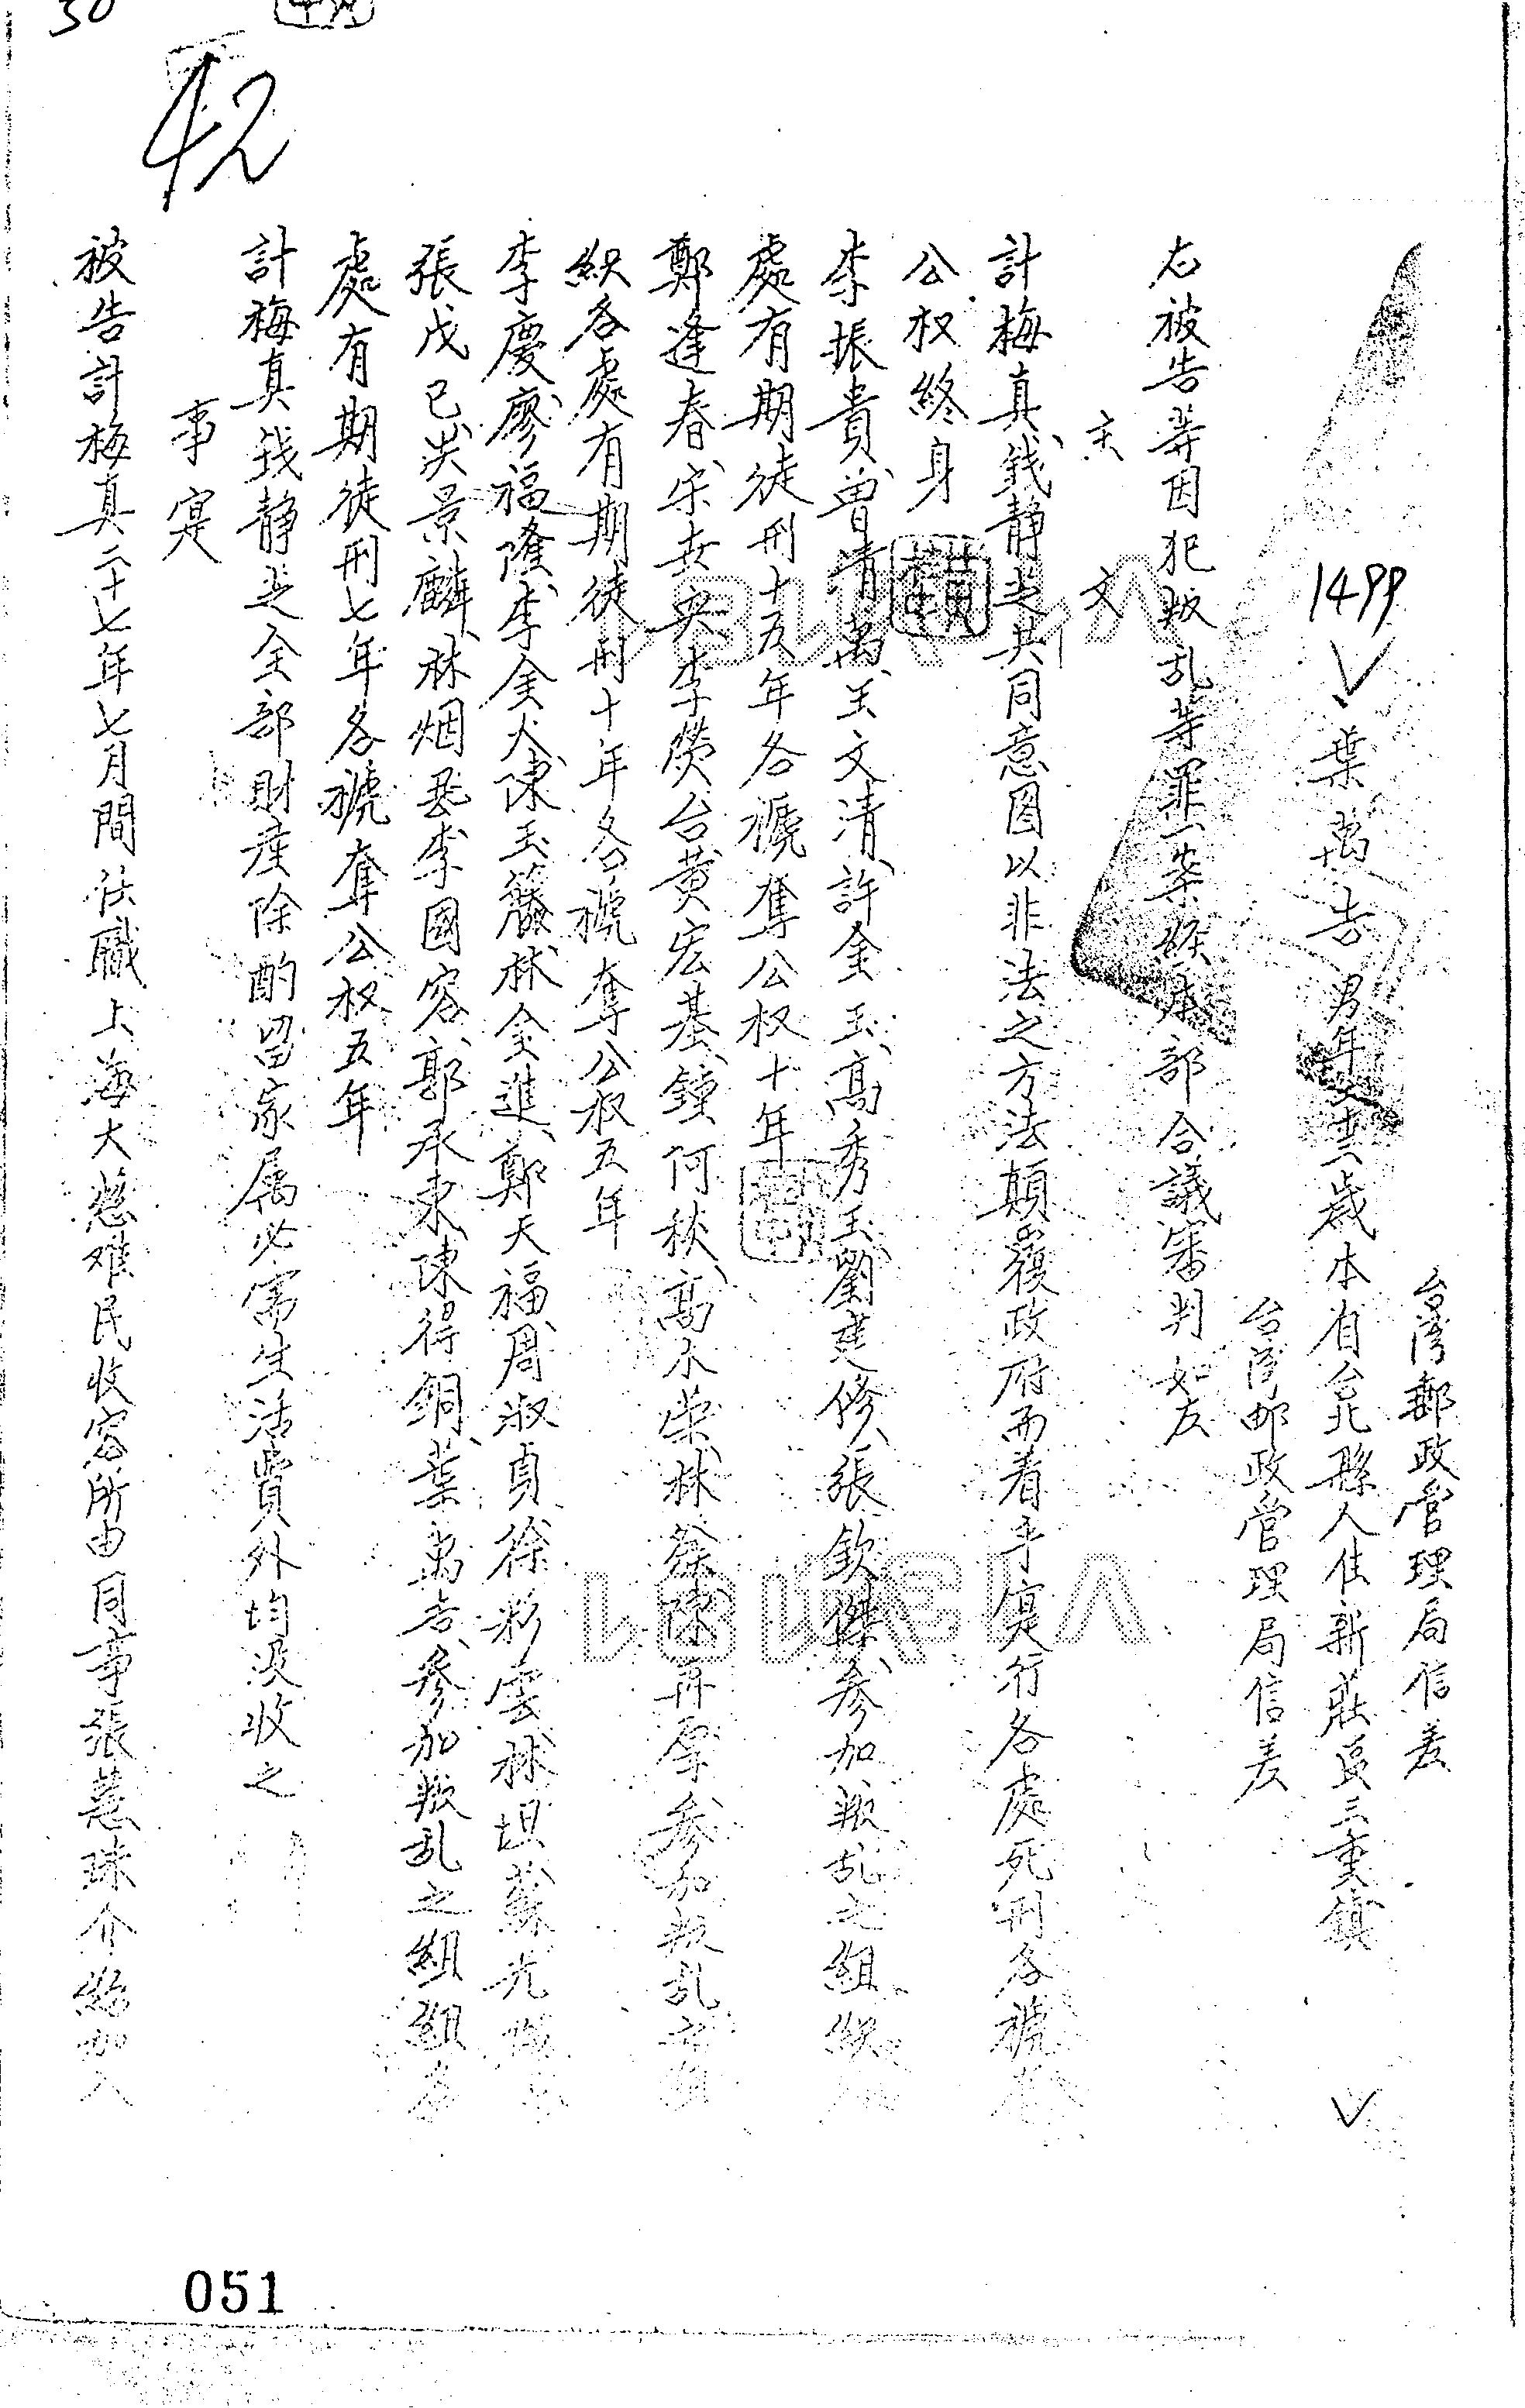 台灣郵政管理局信差
1499 葉萬吉 男年 歲本省台北縣人住新莊區三重鎮
台灣邮政管理局信差
右被告等因犯叛乱等罪一案經本部合議審判如左
主文
計梅真、錢静芝共同意图以非法之方法顛覆政府而着手寔行各處死刑各褫奪
公权終身
李振貴、曾清萬、王文清、許金玉、高秀玉、劉建修、張欽傑、参加叛乱之組織各
處有期徒刑十五年各褫奪公权十年
鄭逢春、宋世興、李熒台、黄宏基、鍾阿秋、高木荣、林 陳再厚、参加叛乱之組
織各處有期徒刑十年各褫奪公权五年
李慶、廖福隆、李金火、陳玉籐、林全進、鄭天福、周淑貞、徐彩雲、林坦、蘇光
張戊己、吴景麟、林烟基、李國容、郭承東、陳得銅、葉萬吉、参加叛乱之組 各
處有期徒刑七年各褫奪公权五年
計梅真錢静芝全部財產除酌留家属必需生活費外均没收之
事寔
被告計梅真二十七年七月間任職上海大慈难民收容所由同事張慧珠介紹加入
42
051